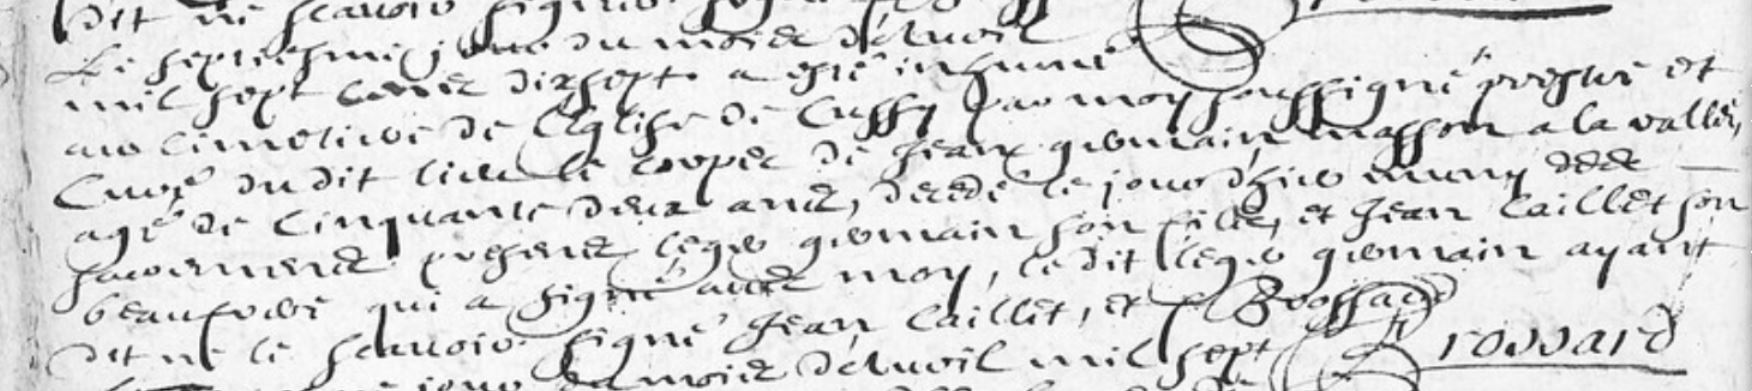 dit ne scavoir signer
Le septiesme jour du mois d'Avril
mil sept cents dixsept a esté inhumé
au cimetiere de l'Eglise de Cussy par moy soussigné prestre et
Curé dudit lieu le corps de Jean germain masson a la vallée,
agé de cinquante deux ans, decedé le jour d'hier muny des
sacrements presents leger germain son fils, et Jean Caillet son
beaufrere qui a signé avec moy, ledit leger germain ayant
dit ne le scavoir signé Jean Caillet, et Brossard
Brossard
jour du mois d'Avril mil sept